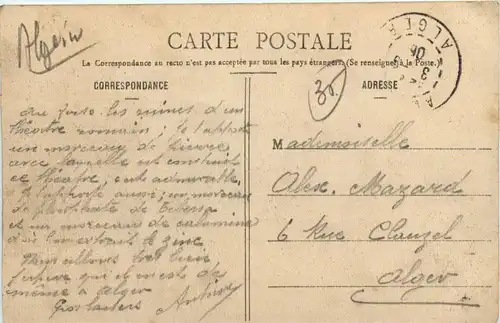 Algérie
CARTE POSTALE
La Correspondance au recto n'est pas acceptée par tous les pays étrangers. (Se renseigner à la Poste.)
CORRESPONDANCE
ADRESSE
35.
ALGER
théâtre romain, je t'apporte
un morceau de pierre
avec laquelle est construit
ce théâtre, c'est admirable
je t'apporte aussi un morceau
de phosphate de Tebessa
et un morceau de calamine
d'où l'on extrait le zinc
Nous allons très bien
j'espère qu'il en est de
même à Alger
Gros baisers
Mademoiselle
Alex. Mazard
6 Rue Clauzel
Alger